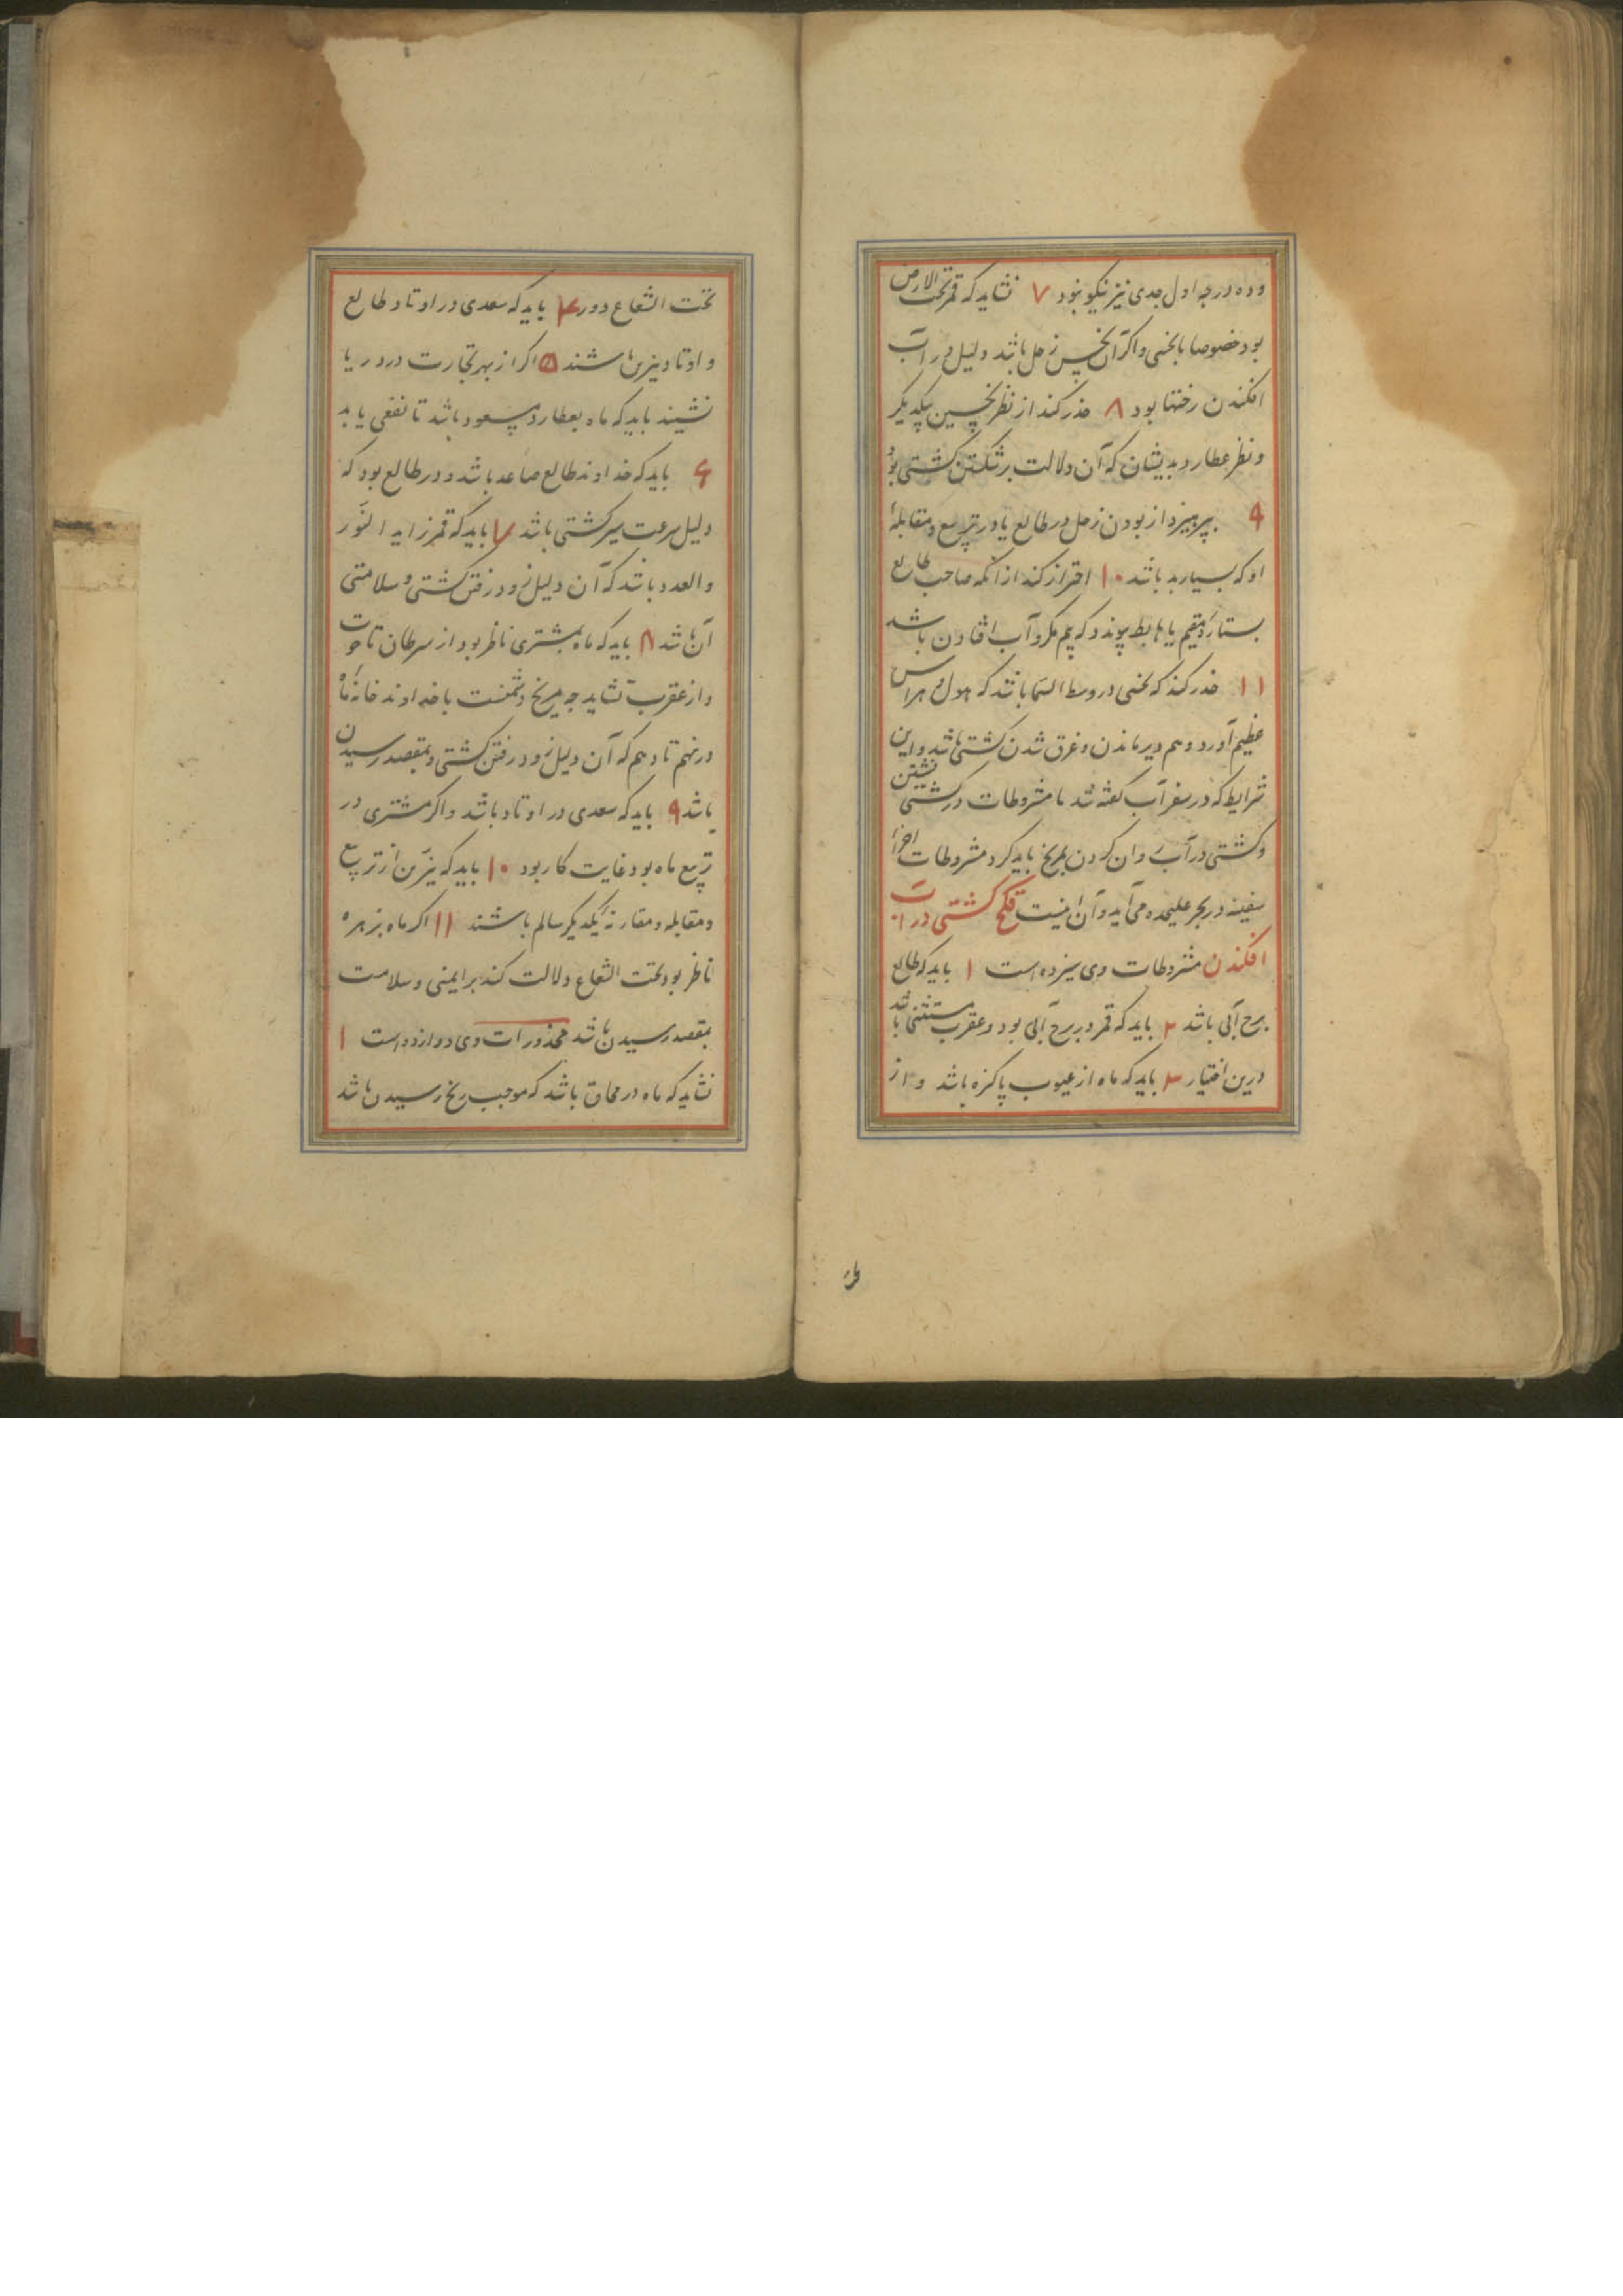 و ده درجه اول جدی نیز نیکو نبود ۷ نشاید که قمر تحت الارض
بود خصوصا با نحسی و اگر آن نحس زحل باشد دلیل در آب
افکندن رختها بود ۸ حذر کند از نظر نحسین بیکدیکر
و نظر عطارد بدیشان که آن دلالت بر شکستن کشتی بود
۹ بپرهیزد از بودن زحل در طالع یا در تربیع و مقابلهٔ
او که بسیار بد باشد ۱۰ احتراز کند از آنکه صاحب طالع
بستارهٔ مقیم یا هابط پیوندد که بیم مکر و آب افتادن باشد
۱۱ حذر کند که نحسی در وسط السما باشد که هول و هراس
عظیم آورد و هم دیر ماندن و غرق شدن کشتی باشد و این
شرایط که در سفر آب کفته شد با مشروطات در کشتی نشستن
و کشتی در آب روان کردن بمریخ باید کرد و مشروطات اجرا
سفینه در بحر علیحده می آید و آن اینست کشتی در آب
افکندن مشروطات وی سیزده است ۱ باید که طالع
برج آبی باشد ۲ باید که قمر در برج آبی بود و عقرب مستثنی باشد
درین اختیار ۳ باید که ماه از عیوب پاکیزه باشد و از
تحت الشعاع دور ۴ باید که سعدی در اوتاد طالع
و اوتاد نیرین باشند ۵ اکر از بهر تجارت در دریا
نشیند باید که ماه بعطارد مسعود باشد تا نفعی یابد
۶ باید که خداوند طالع صاعد باشد و در طالع بود که
دلیل سرعت سیر کشتی باشد ۷ باید که قمر زاید النور
و العدد باشد که آن دلیل زود رفتن کشتی و سلامتی
آن باشد ۸ باید که ماه بمشتری ناظر بود از سرطان تا حوت
و از عقرب نشاید چه مریخ دشمنست با خداوند خانهٔ ماه
در نهم تا دهم که آن دلیل زود رفتن کشتی و بمقصد رسیدن
باشد ۹ باید که سعدی در اوتاد باشد و اکر مشتری در
تربیع ماه بود غایت کار بود ۱۰ باید که نیرین از تربیع
و مقابله و مقارنهٔ یکدیکر سالم باشند ۱۱ اکر ماه بزهره
ناظر بود تحت الشعاع دلالت کند بر ایمنی و سلامت
بمقصد رسیدن باشد محذورات وی دوازده است ۱
نشاید که ماه در محاق باشد که موجب رنج رسیدن باشد